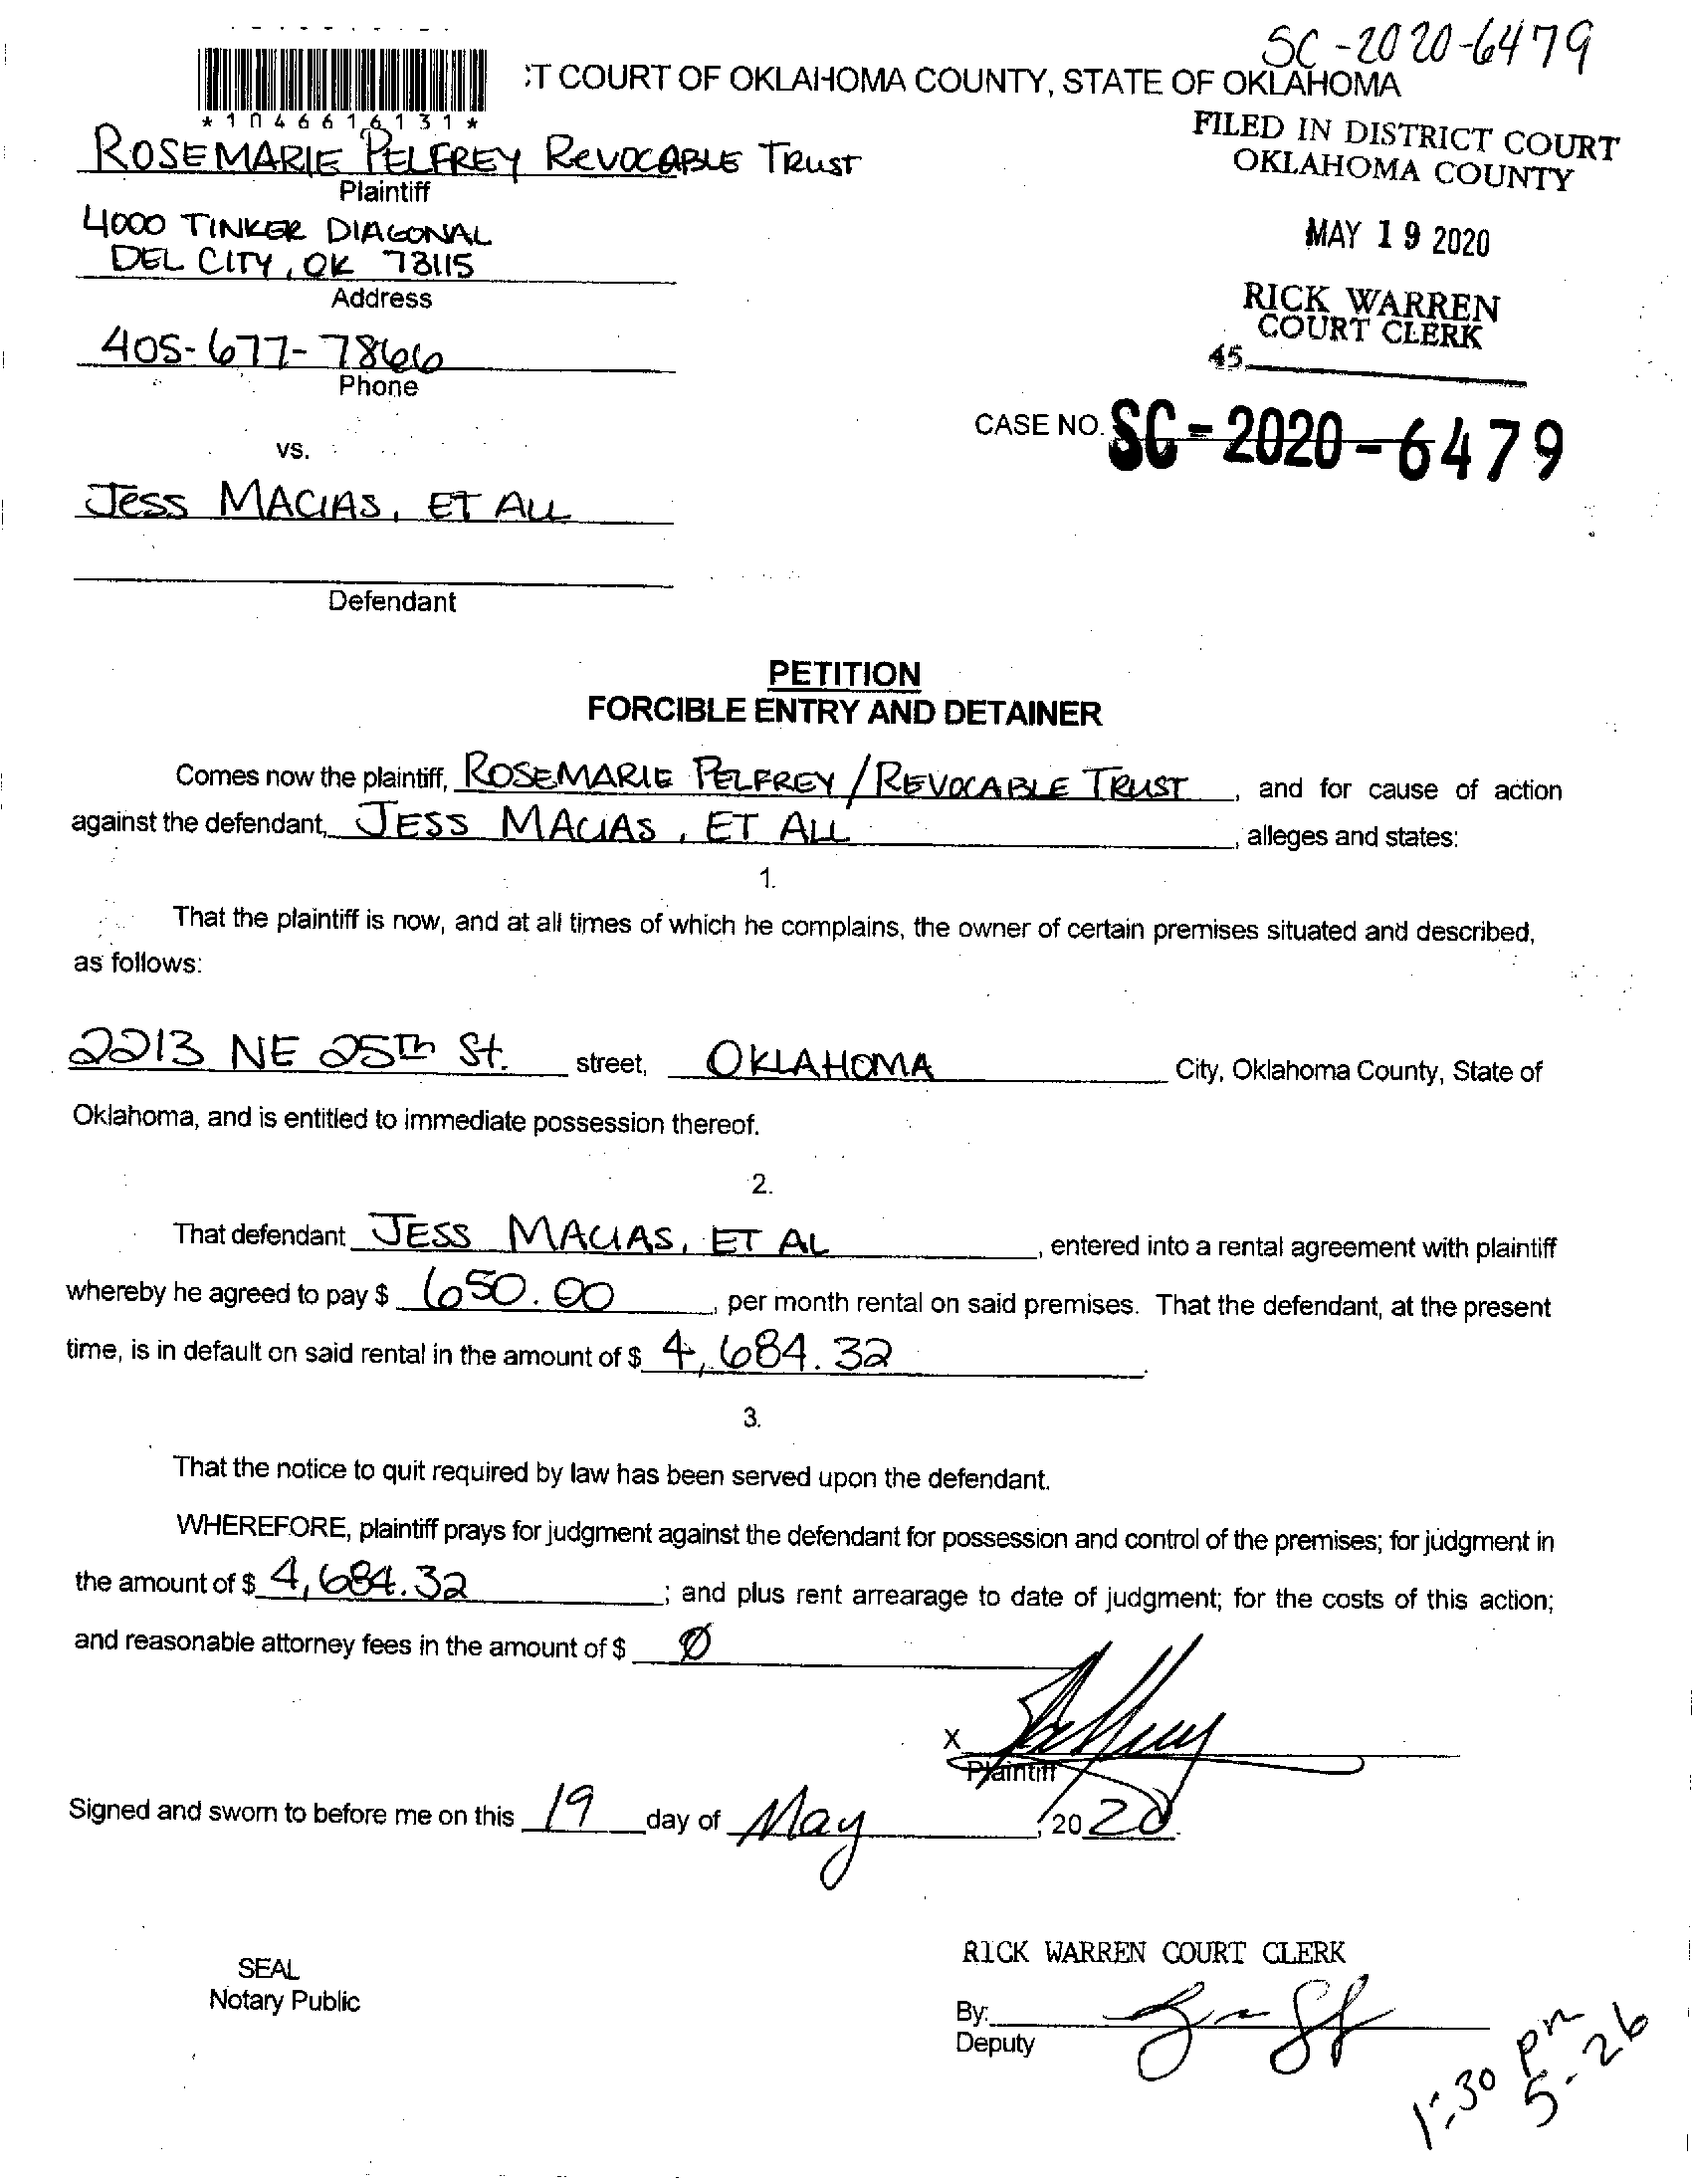 SC-2020-6479
:T COURT OF OKLAHOMA COUNTY, STATE OF OKLAHOMA
*1046616131*
FILED IN DISTRICT COURT
OKLAHOMA COUNTY
ROSEMARIE PELFREY REVOCABLE TRUST
Plaintiff
4000 TINKER DIAGONAL
DEL CITY, OK 73115
Address
MAY 19 2020
RICK WARREN
COURT CLERK
45
405-677-7866
Phone
CASE NO. SC-2020-6479
vs.
JESS MACIAS, ET ALL
Defendant
PETITION
FORCIBLE ENTRY AND DETAINER
Comes now the plaintiff, ROSEMARIE PELFREY / REVOCABLE TRUST, and for cause of action
against the defendant, JESS MACIAS, ET ALL, alleges and states:
1.
That the plaintiff is now, and at all times of which he complains, the owner of certain premises situated and described,
as follows:
2213 NE 25TH St. street, OKLAHOMA City, Oklahoma County, State of
Oklahoma, and is entitled to immediate possession thereof.
2.
That defendant JESS MACIAS, ET AL, entered into a rental agreement with plaintiff
whereby he agreed to pay $ 650.00, per month rental on said premises. That the defendant, at the present
time, is in default on said rental in the amount of $ 4,684.32.
3.
That the notice to quit required by law has been served upon the defendant.
WHEREFORE, plaintiff prays for judgment against the defendant for possession and control of the premises; for judgment in
the amount of $ 4,684.32; and plus rent arrearage to date of judgment; for the costs of this action;
and reasonable attorney fees in the amount of $ Ø
X
Plaintiff
Signed and sworn to before me on this 19 day of May, 2020.
RICK WARREN COURT CLERK
SEAL
Notary Public
By:
Deputy
1:30 pm
5-26